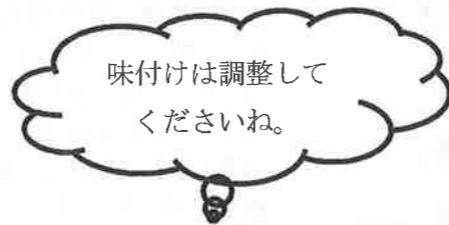 味付けは調整して
くださいね。